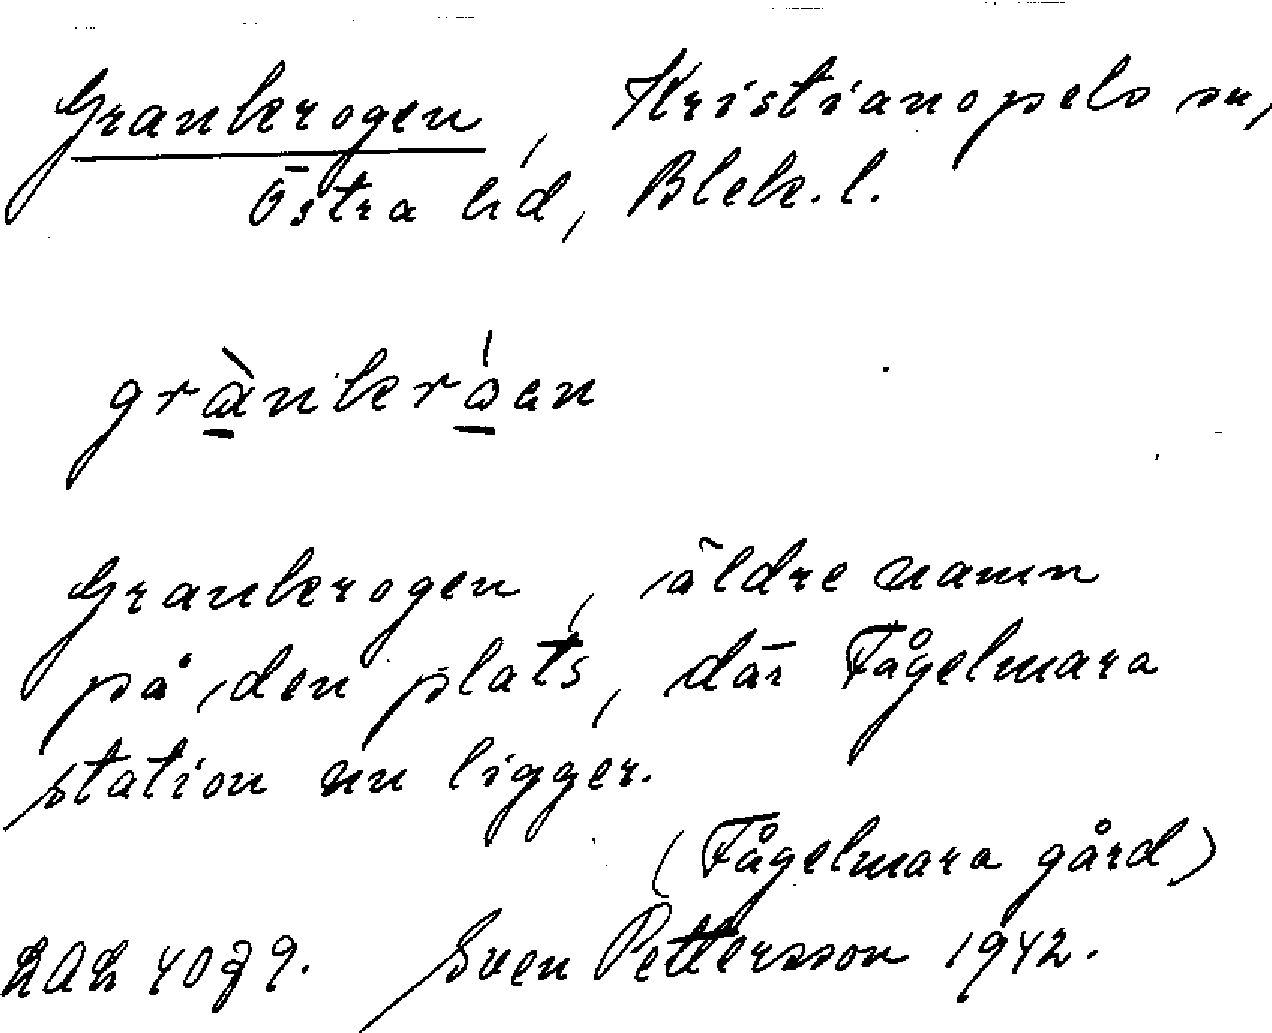 Grankrogen, Kristianopels sn,
Östra hd, Blek. l.
grànkróen
Grankrogen, äldre namn
på den plats, där Fågelmara
station nu ligger.
(Fågelmara gård)
Sven Pettersson 1942.